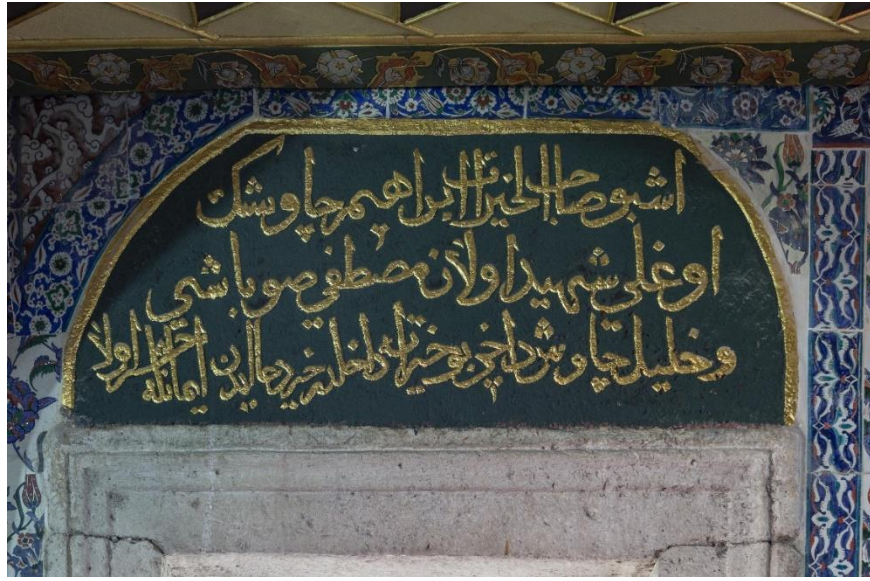 اشبو صاحب الخیرات ابراهیم چاوشک
اوغلی شهید اولان مصطفی صوباشی
و خلیل چاوش داخی بو خیراته داخلدر خیر دعا ایدن ایمانله اولا